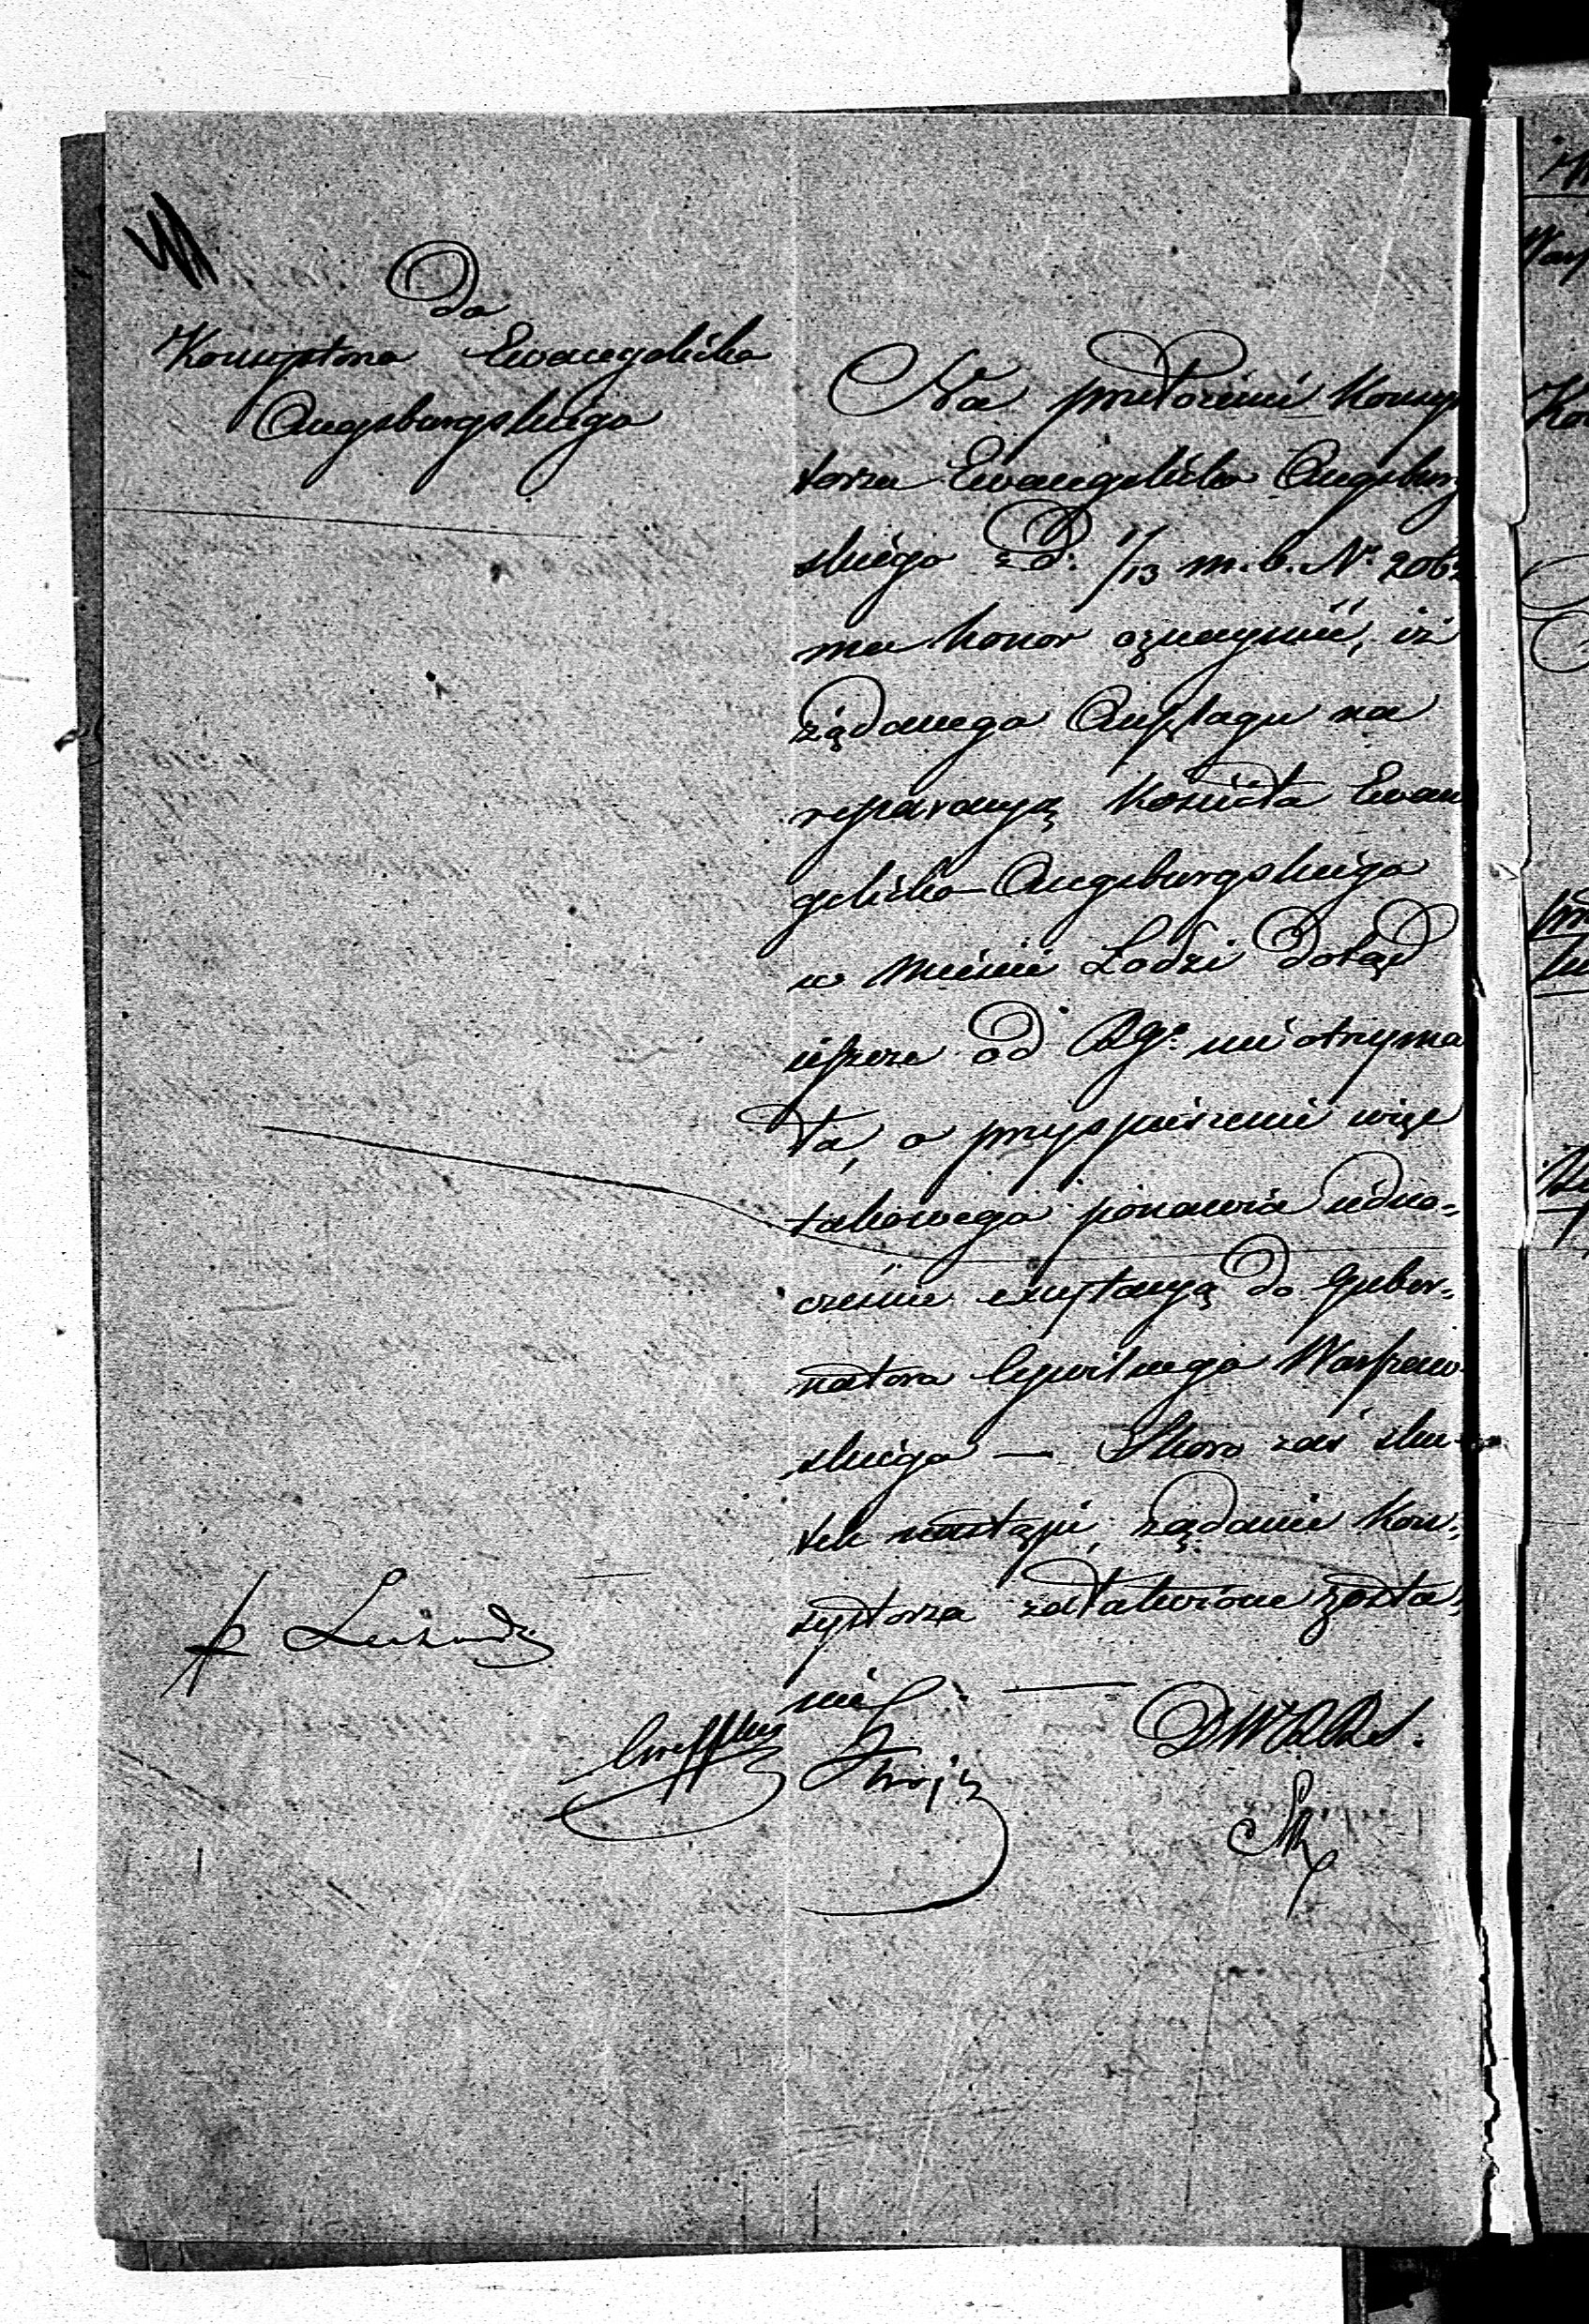 Do
Konsystorza Ewangelicko
Augsburgskiego
Na przełożenie Konsys
torza Ewangelicko Augsburg
skiego z d. 1/13 m. b. Nr 2062
ma honor oznaymić, iż
żądanego Anszlagu na
reparacyą Kościoła Ewan
gelicko-Augsburgskiego
w Mieście Łodzi dotąd
ieszcze od Rg. nie otrzyma
ła, o przyspieszenie więc
takowego ponawia iedno-
cześnie excytacyą do Guber-
natora Cywilnego Warszaw
skiego — Skoro zaś sku-
tek nastąpi, żądanie Kon-
systorza załatwione zosta-
nie. —